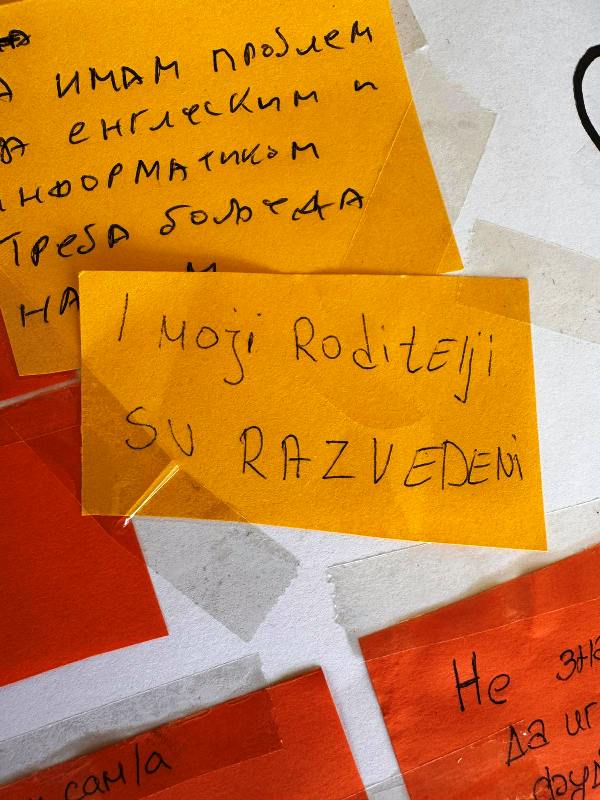 А ИМАМ ПРОБЛЕМ
ЕНГЛЕСКИМ И
ИНФОРМАТИКОМ
ТРЕБА БОЉЕ ДА
НА
I MOJI RODITELJI
SU RAZVEDENI
Не
да
сам/а